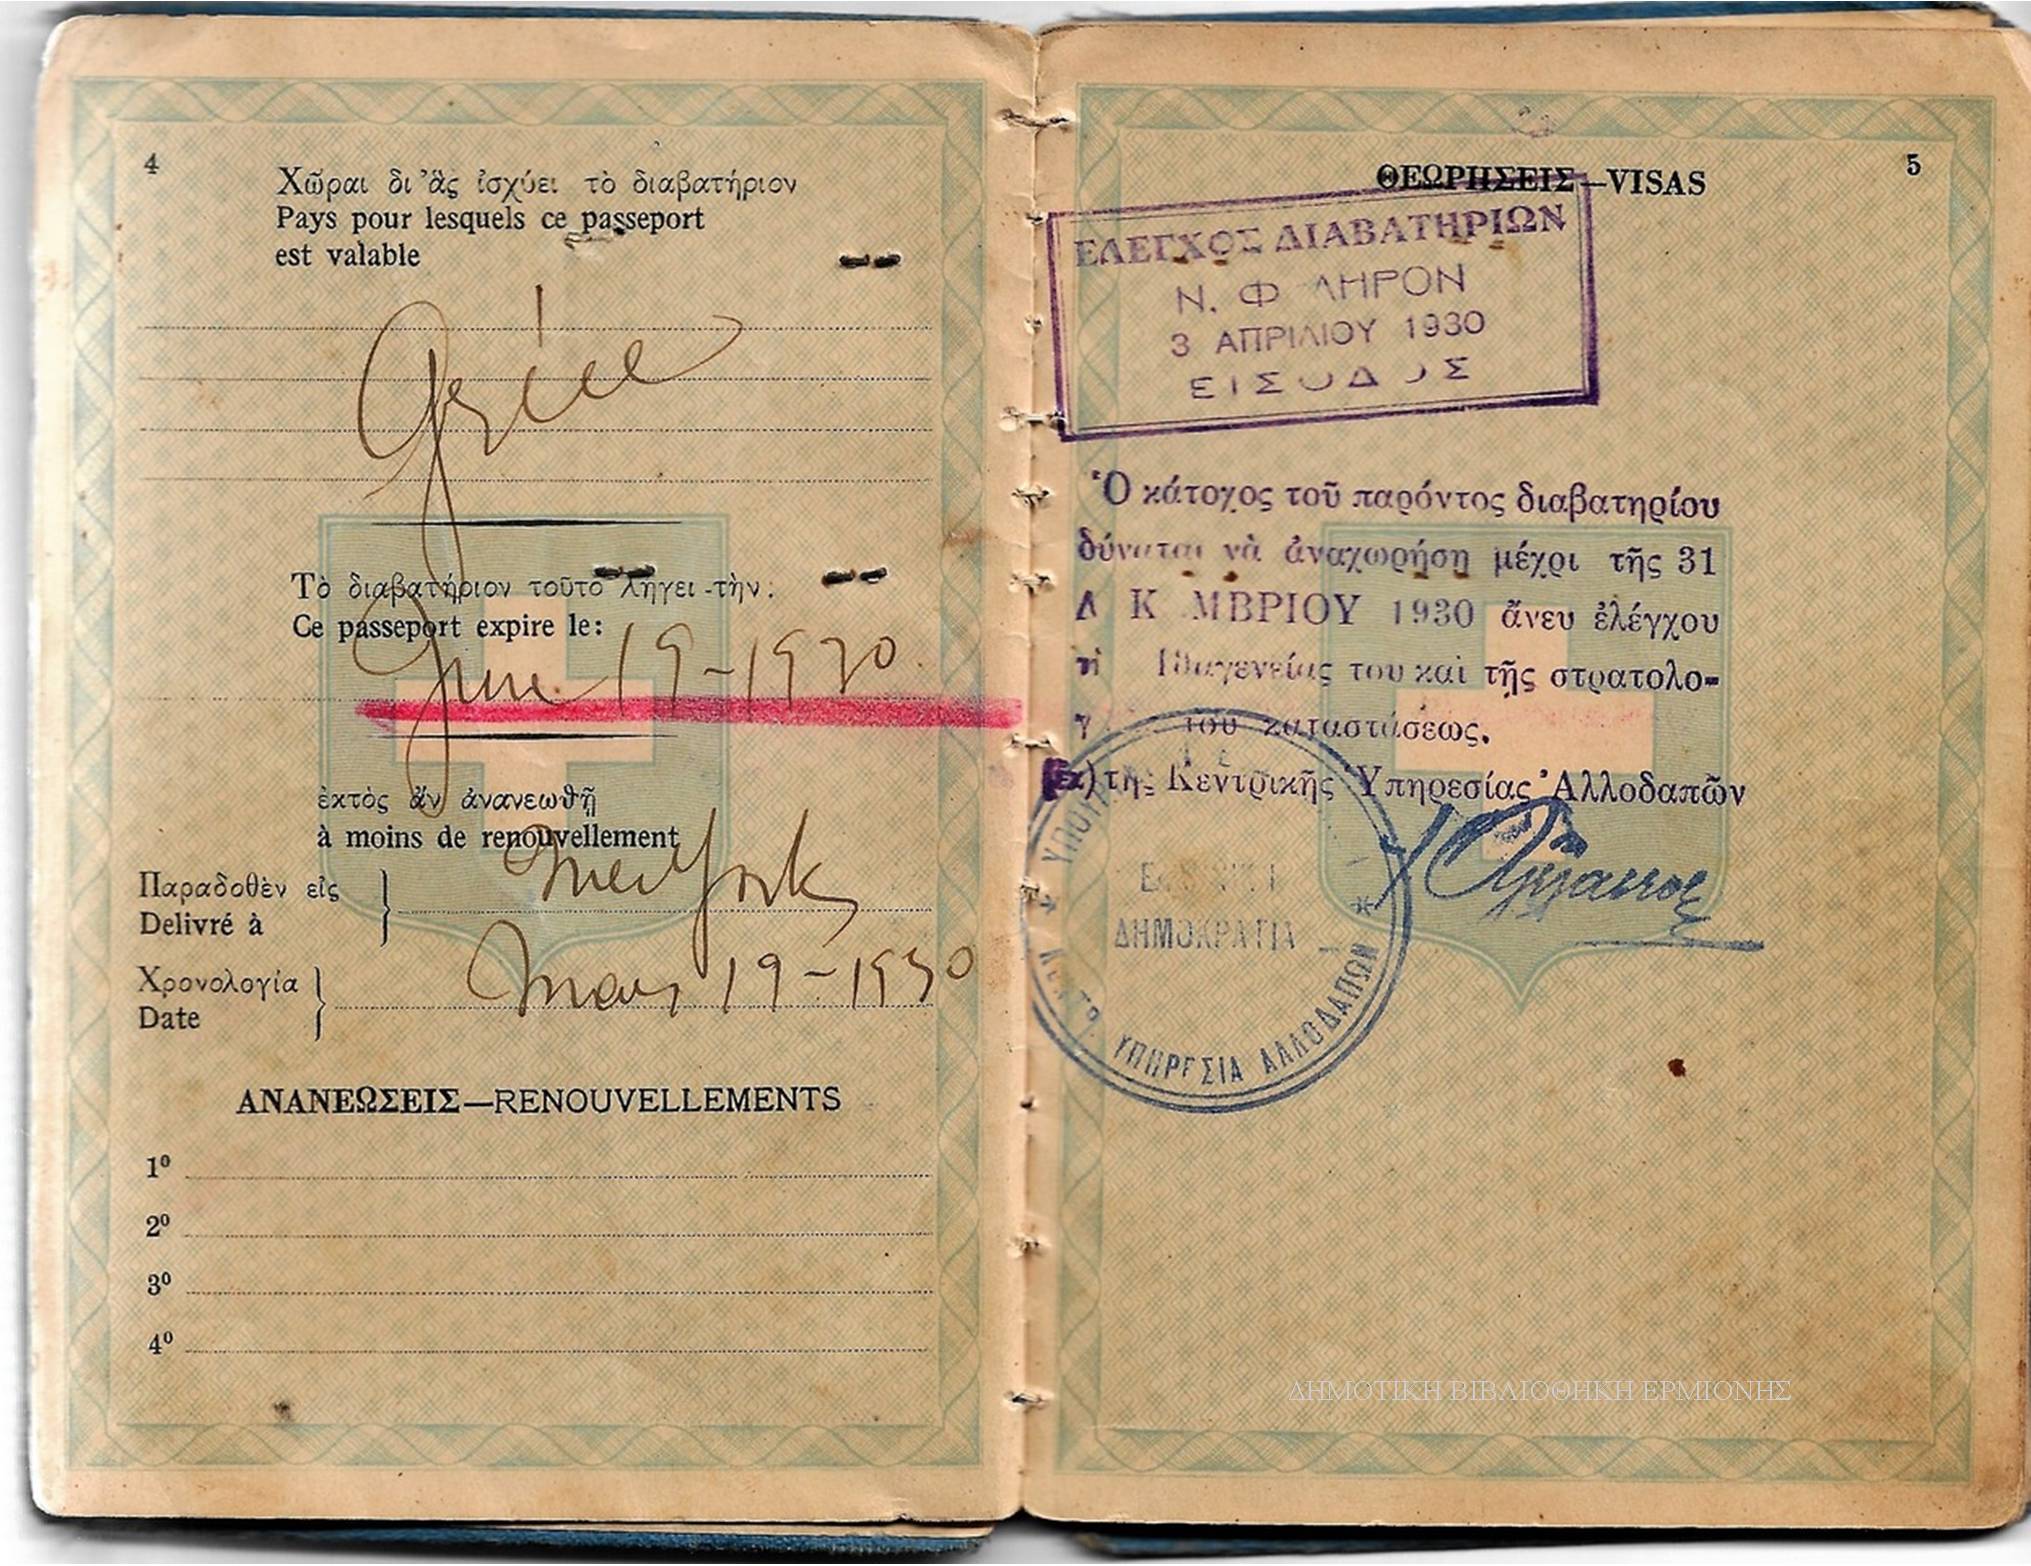 4
Χῶραι δι᾿ ἃς ἰσχύει τὸ διαβατήριον
Pays pour lesquels ce passeport
est valable
Grèce
Τὸ διαβατήριον τοῦτο λήγει τὴν:
Ce passeport expire le:
June 19-1930
ἐκτὸς ἂν ἀνανεωθῇ
à moins de renouvellement
Παραδοθὲν εἰς
Delivré à
New York
Χρονολογία
Date
19-1930
ΑΝΑΝΕΩΣΕΙΣ—RENOUVELLEMENTS
1º
2º
3º
4º
5
ΘΕΩΡΗΣΕΙΣ—VISAS
ΕΛΕΓΧΟΣ ΔΙΑΒΑΤΗΡΙΩΝ
Ν. Φ ΛΗΡΟΝ
3 ΑΠΡΙΛΙΟΥ 1930
ΕΙΣΟΔΟΣ
Ὁ κάτοχος τοῦ παρόντος διαβατηρίου
δύναται νὰ ἀναχωρήσῃ μέχρι τῆς 31
Δ Κ ΜΒΡΙΟΥ 1930 ἄνευ ἐλέγχου
ἰθαγενείας του καὶ τῆς στρατολο-
γ του καταστάσεως.
(Ἐκ) τῆς Κεντρικῆς Ὑπηρεσίας Ἀλλοδαπῶν
ΔΗΜΟΚΡΑΤΙΑ
ΚΕΝΤΡ. ΥΠΗΡΕΣΙΑ ΑΛΛΟΔΑΠΩΝ
ΔΗΜΟΤΙΚΗ ΒΙΒΛΙΟΘΗΚΗ ΕΡΜΙΟΝΗΣ